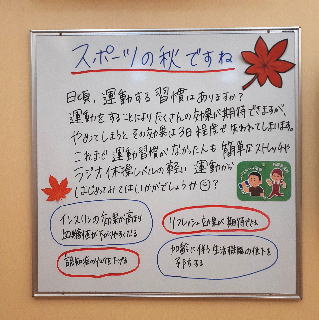 スポーツの秋ですね
日頃、運動する習慣はありますか?
運動をすることによりたくさんの効果が期待できますが、
やめてしまうと、その効果は3日程度で失われてしまいます。
これまで運動習慣がなかった人も簡単なストレッチや
ラジオ体操レベルの軽い運動から
はじめてみてはいかがでしょうか
インスリンの効果が高まり
血糖値が下がりやすくなる
リフレッシュ効果が期待できる
認知症のリスクを下げる
加齢に伴う生活機能の低下を
予防する